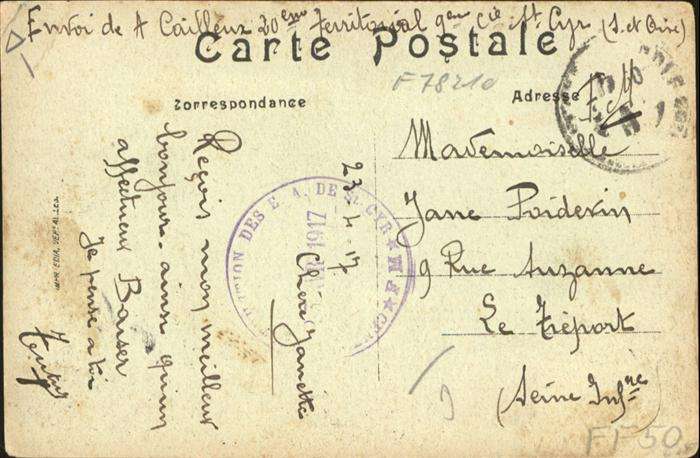 Envoi de A Cailleux 20ème Territorial 9ème Cie St Cyr (S. et Oise)
Carte Postale
F78210
Correspondance
Adresse
F M
23 - 4 - 17
Chère Janette
Reçois mon meilleur
bonjour. ainsi qu'un
affectueux Baiser
Je pense a toi
Mademoiselle
Jane Poidevin
9 Rue Suzanne
Le Tréport
(Seine Infre)
DES E. A. DE St CYR ★ M F ★
1917
FF50